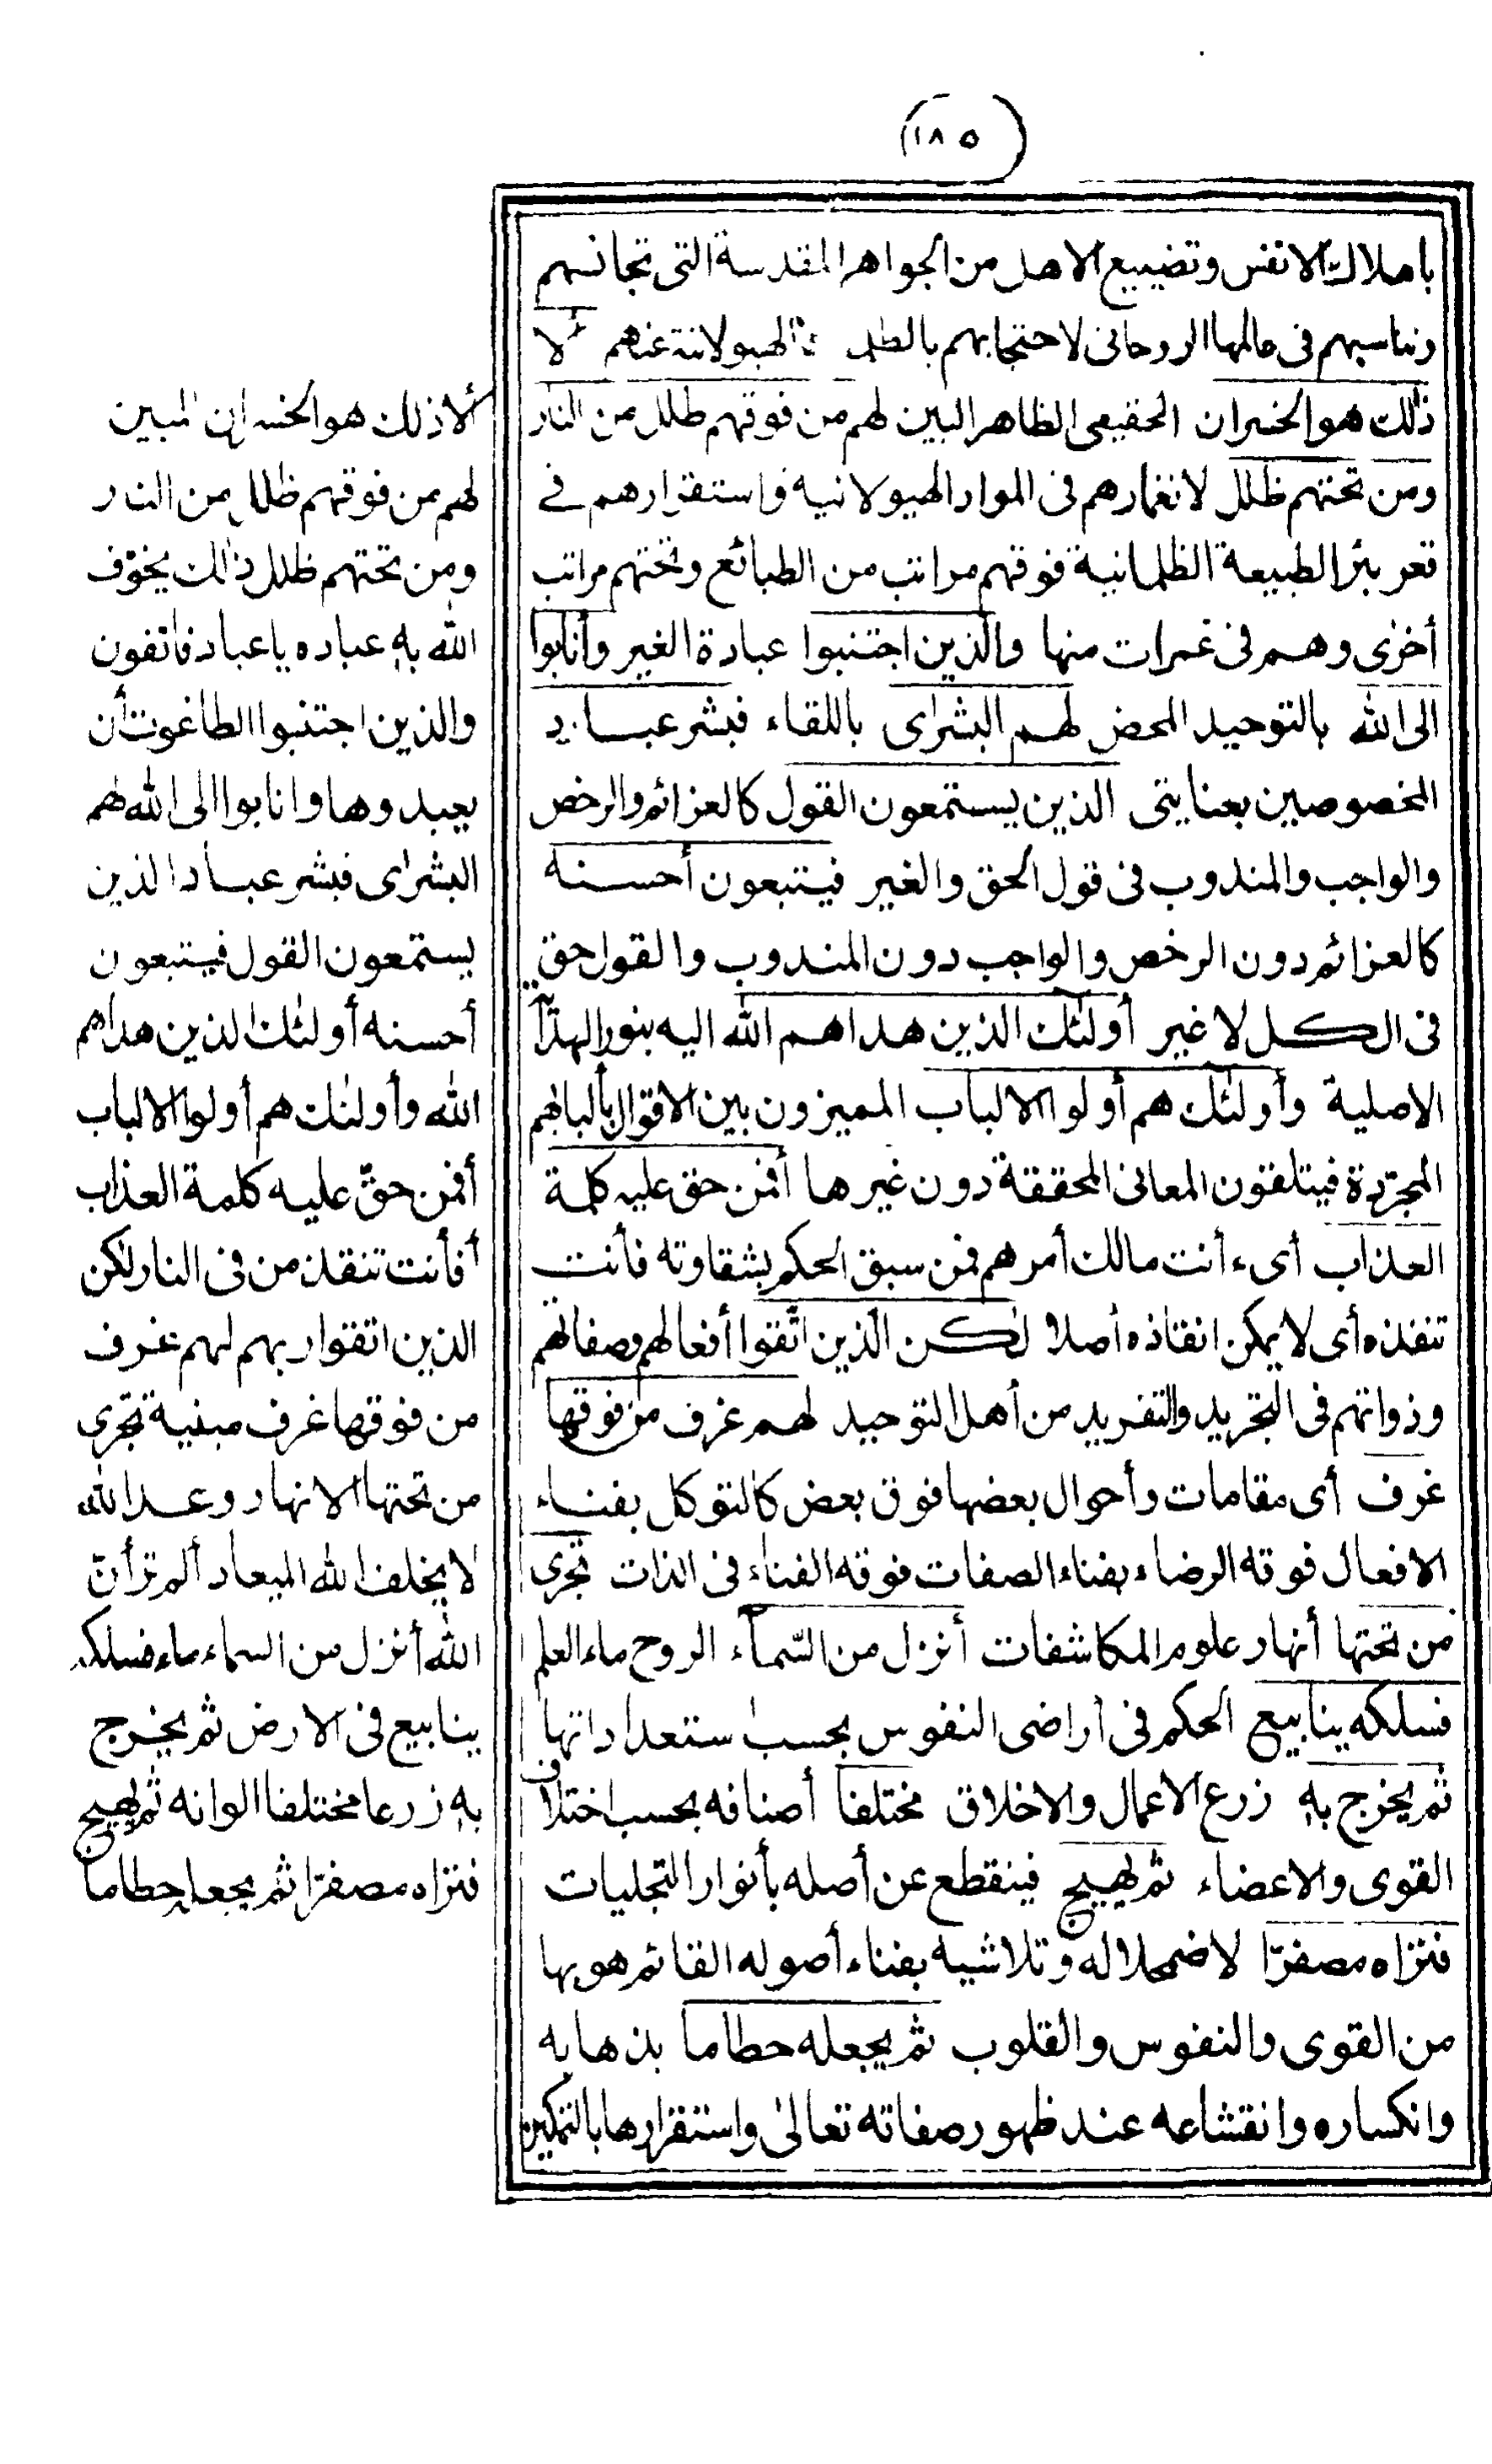 (١٨٥)
باهلاك الانفس وتضييع الاهل من الجواهر المقدسة التى تجانسهم
وتناسبهم فى عالمها الروحانى لاحتجابهم بالظلمات الهيولانية عنهم ألا
ذلك هو الخسران الحقيقى الظاهر البين لهم من فوقهم ظلل من النار
ومن تحتهم ظلل لانغمارهم فى المواد الهيولانية واستقرارهم فى
قعر بئر الطبيعة الظلمانية فوقهم مراتب من الطبائع وتحتهم مراتب
أخرى وهم فى غمرات منها والذين اجتنبوا عبادة الغير وأنابوا
الى الله بالتوحيد المحض لهم البشرى باللقاء فبشر عباد
المخصوصين بعنايتى الذين يستمعون القول كالعزائم والرخص
والواجب والمندوب فى قول الحق والغير فيتبعون أحسنه
كالعزائم دون الرخص والواجب دون المندوب والقول حق
فى الكل لا غير أولئك الذين هداهم الله اليه بنور الهداية
الاصلية وأولئك هم أولوا الالباب المميزون بين الاقوال بألبابهم
المجرّدة فيتلقون المعانى المحققة دون غيرها أفمن حق عليه كلمة
العذاب أى ءأنت مالك أمرهم فمن سبق الحكم بشقاوته فأنت
تنقذه أى لا يمكن انقاذه أصلا لكن الذين اتّقوا أفعالهم وصفاتهم
وذواتهم فى التجريد والتفريد من أهل التوحيد لهم غرف من فوقها
غرف أى مقامات وأحوال بعضها فوق بعض كالتوكل بفناء
الافعال فوقه الرضاء بفناء الصفات فوقه الفناء فى الذات تجرى
من تحتها أنهار علوم المكاشفات أنزل من السّماء الروح ماء العلم
فسلكه ينابيع الحكم فى أراضى النفوس بحسب استعداداتها
ثم يخرج به زرع الاعمال والاخلاق مختلفا أصنافه بحسب اختلاف
القوى والاعضاء ثم يهيج فينقطع عن أصله بأنوار التجليات
فتراه مصفرّا لاضمحلاله وتلاشيه بفناء أصوله القائم هو بها
من القوى والنفوس والقلوب ثم يجعله حطاما بذهابه
وانكساره وانقشاعه عند ظهور صفاته تعالى واستقرارها بالتمكين
ألا ذلك هو الخسران المبين
لهم من فوقهم ظلل من النار
ومن تحتهم ظلل ذلك يخوّف
الله به عباده يا عباد فاتقون
والذين اجتنبوا الطاغوت أن
يعبدوها وانابوا الى الله لهم
البشرى فبشر عباد الذين
يستمعون القول فيتبعون
أحسنه أولئك الذين هداهم
الله وأولئك هم أولوا الالباب
أفمن حقّ عليه كلمة العذاب
أفأنت تنقذ من فى النار لكن
الذين اتقوا ربهم لهم غرف
من فوقها غرف مبنية تجرى
من تحتها الانهار وعد الله
لا يخلف الله الميعاد ألم تر أنّ
الله أنزل من السماء ماء فسلكه
ينابيع فى الارض ثم يخرج
به زرعا مختلفا الوانه ثم يهيج
فتراه مصفرّا ثم يجعله حطاما